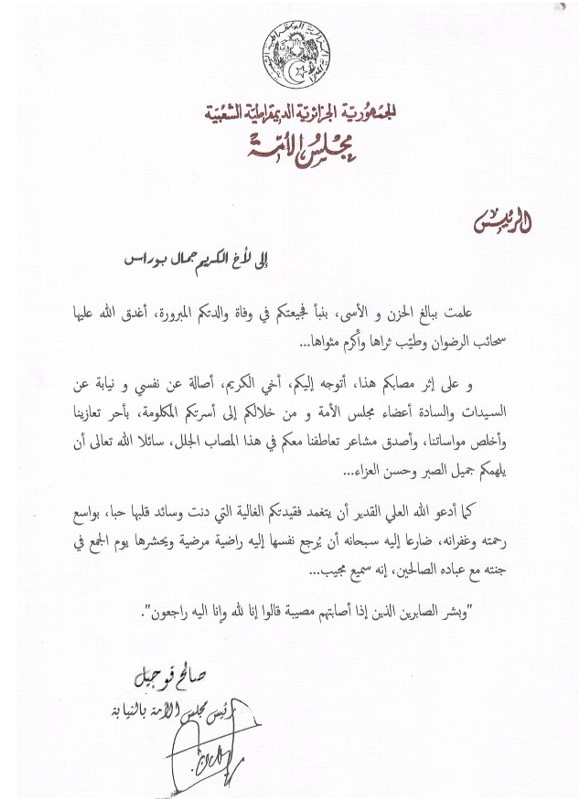 الجمهورية الجزائرية الديمقراطية الشعبية
مجلس الأمة
الرئيس
إلى لأخ الكريم جمال بوراس
علمت ببالغ الحزن و الأسى، بنبأ فجيعتكم في وفاة والدتكم المبرورة، أغدق الله عليها
سحائب الرضوان وطيّب ثراها وأكرم مثواها...
و على إثر مصابكم هذا، أتوجه إليكم، أخي الكريم، أصالة عن نفسي و نيابة عن
السيدات والسادة أعضاء مجلس الأمة و من خلالكم إلى أسرتكم المكلومة، بأحر تعازينا
وأخلص مواساتنا، وأصدق مشاعر تعاطفنا معكم في هذا المصاب الجلل، سائلا الله تعالى أن
يلهمكم جميل الصبر وحسن العزاء...
كما أدعو الله العلي القدير أن يتغمد فقيدتكم الغالية التي دنت وسائد قلبها حبا، بواسع
رحمته وغفرانه، ضارعا إليه سبحانه أن يُرجع نفسها إليه راضية مرضية ويحشرها يوم الجمع في
جنته مع عباده الصالحين، إنه سميع مجيب...
"وبشر الصابرين الذين إذا أصابتهم مصيبة قالوا إنا لله وانا اليه راجعون".
صالح قوجيل
رئيس مجلس الأمة بالنيابة